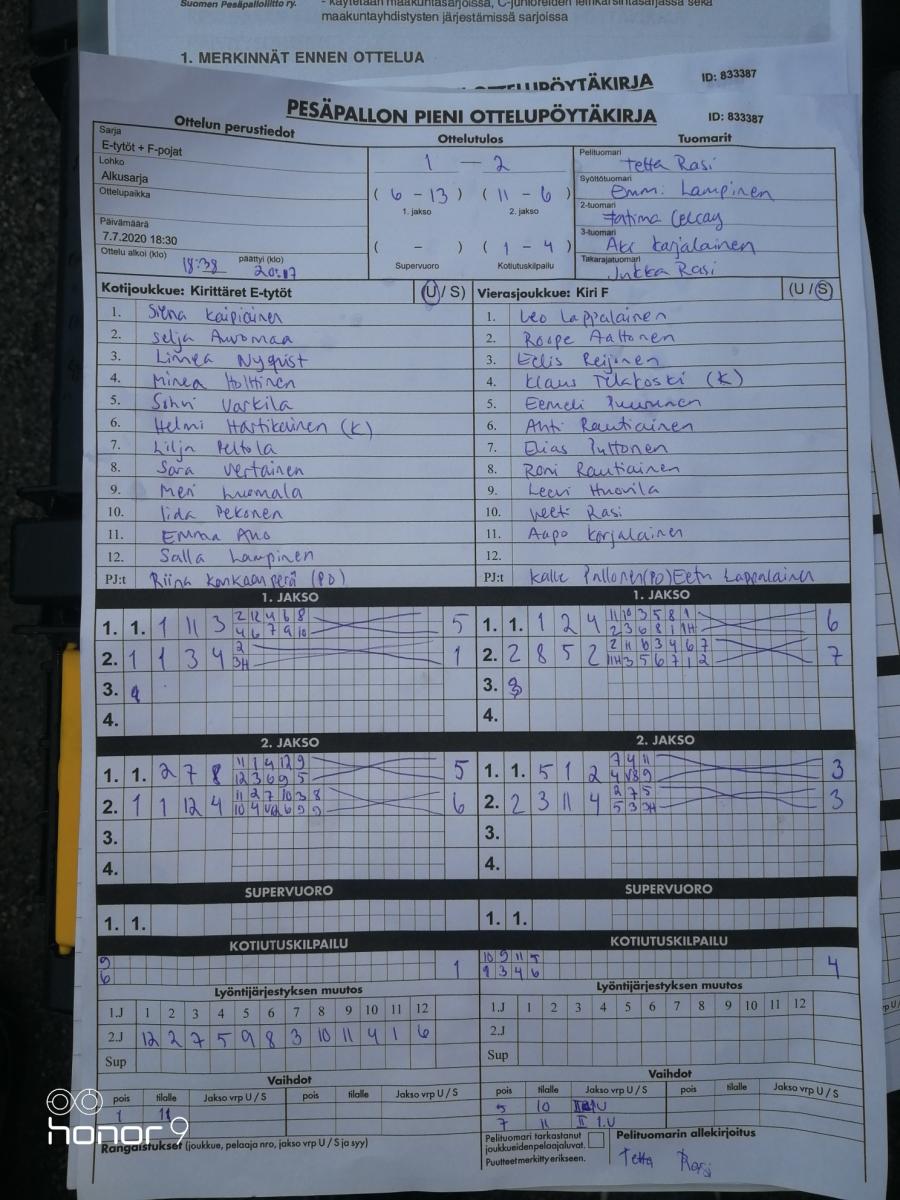 Suomen Pesäpalloliitto ry.
- käytetään maakuntasarjoissa, C-junioreiden leirikarsintasarjassa sekä
maakuntayhdistysten järjestämissä sarjoissa
1. MERKINNÄT ENNEN OTTELUA
OTTELUPÖYTÄKIRJA ID: 833387
PESÄPALLON PIENI OTTELUPÖYTÄKIRJA ID: 833387
Ottelun perustiedot
Sarja
E-tytöt + F-pojat
Lohko
Alkusarja
Ottelupaikka
Päivämäärä
7.7.2020 18:30
Ottelu alkoi (klo) päättyi (klo)
18:38 20:17
Ottelutulos
1 — 2
( 6 - 13 ) ( 11 - 6 )
1. jakso 2. jakso
( - ) ( 1 - 4 )
Supervuoro Kotiutuskilpailu
Tuomarit
Pelituomari
Tetta Rasi
Syöttötuomari
Emmi Lampinen
2-tuomari
Fatima
3-tuomari
Karjalainen
Takarajatuomari
Jukka Rasi
Kotijoukkue: Kirittäret E-tytöt (U / S)
1. Siena Kaipiainen
2. Selja Auvomaa
3. Linnea Nyqvist
4. Minea Holttinen
5. Varkila
6. Helmi Hartikainen (K)
7. Lilja Peltola
8. Sara Vertainen
9. Meri Luomala
10. Iida Pekonen
11. Emma Aho
12. Salla Lampinen
PJ:t Riina Konkaanperä (PD)
Vierasjoukkue: Kiri F (U / S)
1. Leo Lappalainen
2. Roope Aaltonen
3. Eelis Reijonen
4. Klaus Tilakoski (K)
5. Eemeli Puurunen
6. Ahti Rautiainen
7. Elias Puttonen
8. Roni Rautiainen
9. Leevi Huovila
10. Veeti Rasi
11. Aapo Korjalainen
12.
PJ:t Kalle Eetu Lappalainen
1. JAKSO
1. 1. 1 11 3 2 12 4 6 8 5
4 6 7 9 10
2. 1 1 3 4 2 1
3H
3.
4.
1. JAKSO
1. 1. 1 2 4 11 10 3 5 8 1 6
2 3 6 8 1 1H
2. 2 8 5 2 2 11 6 3 4 6 7 7
11H 3 5 6 7 1 2
3.
4.
2. JAKSO
1. 1. 2 7 8 11 1 4 12 9 5
12 3 6 9 5
2. 1 1 12 4 11 2 7 10 3 8 6
10 4 6 9 9
3.
4.
2. JAKSO
1. 1. 5 1 2 7 4 11 3
4 9
2. 2 3 11 4 2 7 5 3
5 3 3H
3.
4.
SUPERVUORO
1. 1.
SUPERVUORO
1. 1.
KOTIUTUSKILPAILU
9 1
6
KOTIUTUSKILPAILU
10 9 11 5 4
9 3 4 6
Lyöntijärjestyksen muutos
1.J 1 2 3 4 5 6 7 8 9 10 11 12
2.J 12 2 7 5 9 8 3 10 11 4 1 6
Sup
Lyöntijärjestyksen muutos
1.J 1 2 3 4 5 6 7 8 9 10 11 12
2.J
Sup
Vaihdot
pois tilalle Jakso vrp U / S pois tilalle Jakso vrp U / S
1 11
Vaihdot
pois tilalle Jakso vrp U / S pois tilalle Jakso vrp U / S
5 10
7 11 II 1.U
Rangaistukset (joukkue, pelaaja nro, jakso vrp U / S ja syy)
Pelituomari tarkastanut
joukkueiden pelaajaluvat.
Puutteet merkitty erikseen.
Pelituomarin allekirjoitus
Tetta Rasi
honor 9